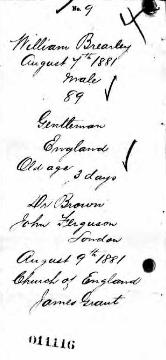 No. 9
4
William Brearley
August 7th 1881
Male
89
Gentleman
England
Old age
3 days
Dr Brown
John Ferguson
London
August 9th 1881
Church of England
James Grant
011116